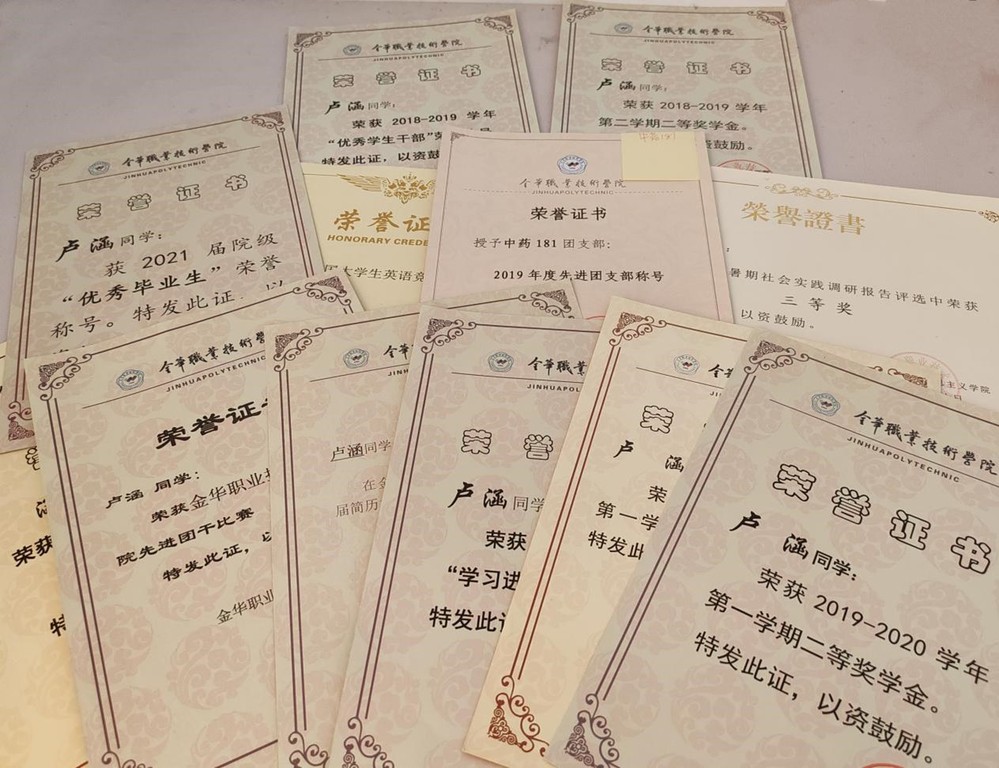 金華職業技術學院
JINHUAPOLYTECHNIC
荣誉证书
卢涵同学：
荣获 2018-2019 学年
“优秀学生干部”
特发此证，以资鼓
金華職業技術學院
JINHUAPOLYTECHNIC
荣誉证书
卢涵同学：
荣获 2018-2019 学年
第二学期二等奖学金。
资鼓励。
金華職業技術學院
JINHUAPOLYTECHNIC
荣誉证书
卢涵同学：
获 2021 届院级
“优秀毕业生”荣誉
称号。特发此证，以
荣誉证
HONORARY CREDE
大学生英语竞
中药181
金華職業技術學院
JINHUAPOLYTECHNIC
荣誉证书
授予中药 181 团支部：
2019 年度先进团支部称号
榮譽證書
暑期社会实践调研报告评选中荣获
三等奖
以资鼓励。
主义学院
荣获
特
金華職業技術學
JINHUAPOLYTECHNIC
荣誉证
卢涵 同学：
荣获金华职业技
院先进团干比赛
特发此证，以
金华职业
金華
JINH
卢涵同学
在金
届简历
金華職業
JINHUAPOL
荣誉
卢涵同学
荣获
“学习进
特发此证
金華
JINH
荣
卢涵
荣
第一学
特发此
金華職業技術學院
JINHUAPOLYTECHNIC
荣誉证书
卢涵同学：
荣获 2019-2020 学年
第一学期二等奖学金。
特发此证，以资鼓励。